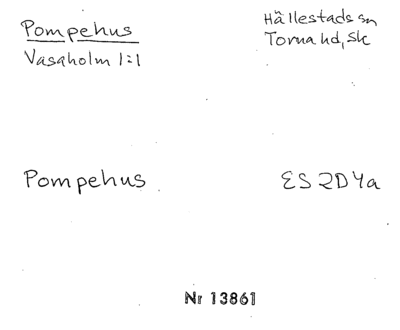 Pompehus
Vasaholm 1:1
Hällestads sn
Torna hd, Sk
Pompehus
ES 2D 4a
Nr 13861